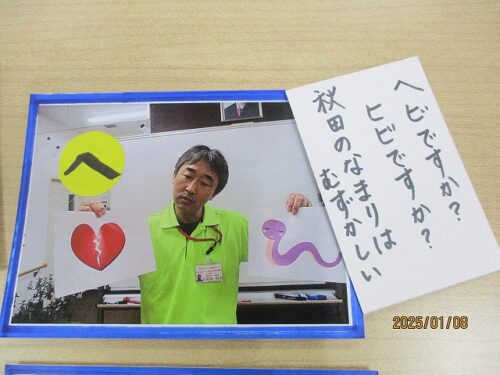 へ
ヘビですか?
ヒビですか?
秋田のなまりは
むずかしい
2025/01/08